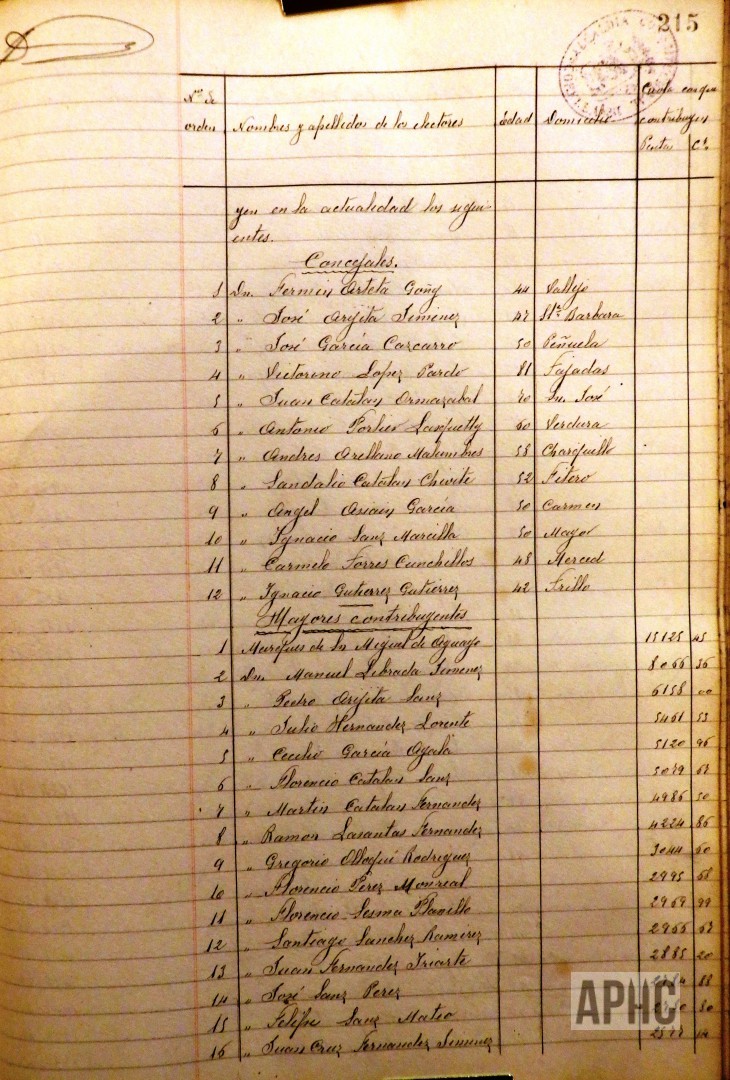 215
Nº de orden Nombres y apellidos de los electores Edad Domicilio Cuota con que contribuyen Pesetas Cs
yen en la actualidad los sigui-
entes.
Concejales.
1 Dn. Fermin Arteta Goñy 44 Vallejo
2 " José Arjita Jiminez 47 Sta Barbara
3 " José Garcia Carcarro 50 Peñuela
4 " Victorino Lopez Pardo 81 Fajadas
5 " Juan Catalan Ormazabal 40 Sn. José
6 " Antonio Porlier 60 Verdura
7 " Andres Arellano Malumbres 53 Charquillo
8 " Sandalio Catalan Chivite 52 Fitero
9 " Angel Assain Garcia 50 Carmen
10 " Ignacio Sanz Marcilla 50 Mayor
11 " Carmelo Torres Cunchillos 48 Merced
12 " Ignacio Gutierrez Gutierrez 42 Trillo
Mayores contribuyentes
1 Marques de Sn Miguel de Aguayo 15125 45
2 Dn. Manuel Librada Jimenez 8066 36
3 " Pedro Arjita Sanz 6158 00
4 " Julio Hernandez Lorente 5461 53
5 " Cecilio Garcia Ayala 5120 96
6 " Florencio Catalan Sanz 5079 67
7 " Martin Catalan Fernandez 4986 50
8 " Ramon Lasantas Fernandez 4224 86
9 " Gregorio Olloqui Rodriguez 3044 60
10 " Florencio Perez Monreal 2995 68
11 " Florencio Sesma Planillo 2969 99
12 " Santiago Sanchez Ramirez 2966 67
13 " Juan Fernandez Iriarte 2885 20
14 " José Sanz Perez 88
15 " Felipe Sanz Mateo 50
16 " Juan Cruz Fernandez Jimenez
APHC